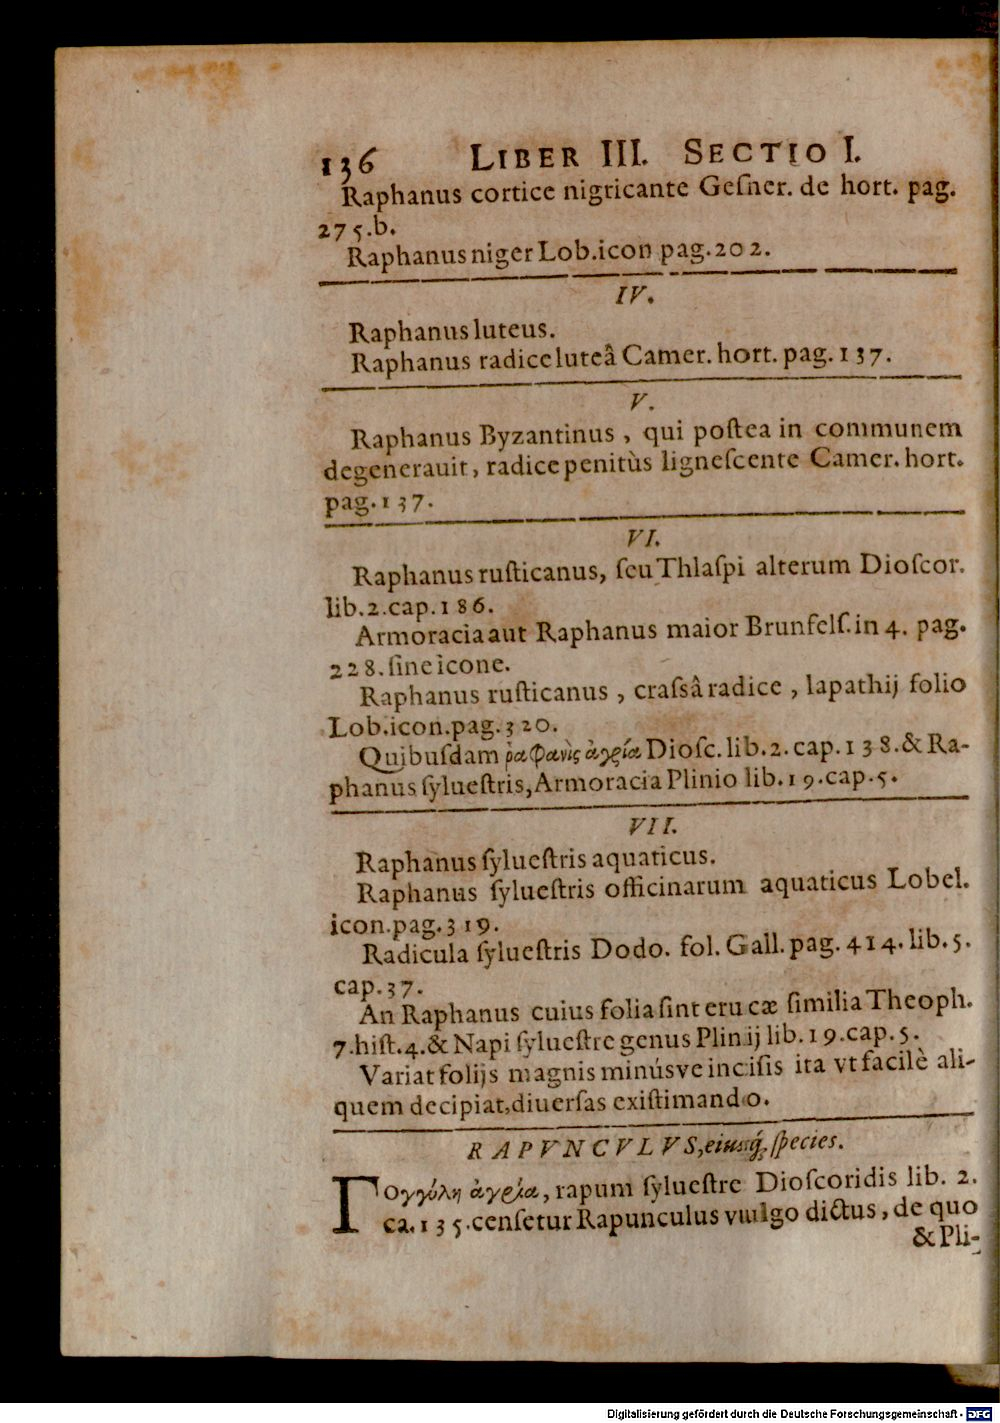 136 LIBER III. SECTIO I.
Raphanus cortice nigricante Geſner. de hort. pag.
275.b.
Raphanus niger Lob.icon pag.202.
IV.
Raphanus luteus.
Raphanus radice luteâ Camer. hort. pag. 137.
V.
Raphanus Byzantinus , qui poſtea in communem
degenerauit, radice penitùs ligneſcente Camer. hort.
pag.137.
VI.
Raphanus ruſticanus, ſeu Thlaſpi alterum Dioſcor.
lib.2.cap.186.
Armoracia aut Raphanus maior Brunfelſ.in 4. pag.
228.ſine icone.
Raphanus ruſticanus , craſsâ radice , lapathij folio
Lob.icon.pag.320.
Quibuſdam ῥαφανὶς ἀγρία Dioſc. lib.2. cap.138.& Ra-
phanus ſylueſtris,Armoracia Plinio lib.19.cap.5.
VII.
Raphanus ſylueſtris aquaticus.
Raphanus ſylueſtris officinarum aquaticus Lobel.
icon.pag.319.
Radicula ſylueſtris Dodo. fol. Gall. pag. 414. lib. 5.
cap.37.
An Raphanus cuius folia ſint erucæ ſimilia Theoph.
7.hiſt.4.& Napi ſylueſtre genus Plinij lib.19.cap.5.
Variat folijs magnis minúsve inciſis ita vt facilè ali-
quem decipiat,diuerſas exiſtimando.
RAPVNCVLVS,eiusq́; ſpecies.
Γογγύλη ἀγρία, rapum ſylueſtre Dioſcoridis lib. 2.
ca.135.cenſetur Rapunculus vulgo dictus, de quo
& Pli-
Digitalisierung gefördert durch die Deutsche Forschungsgemeinschaft - DFG